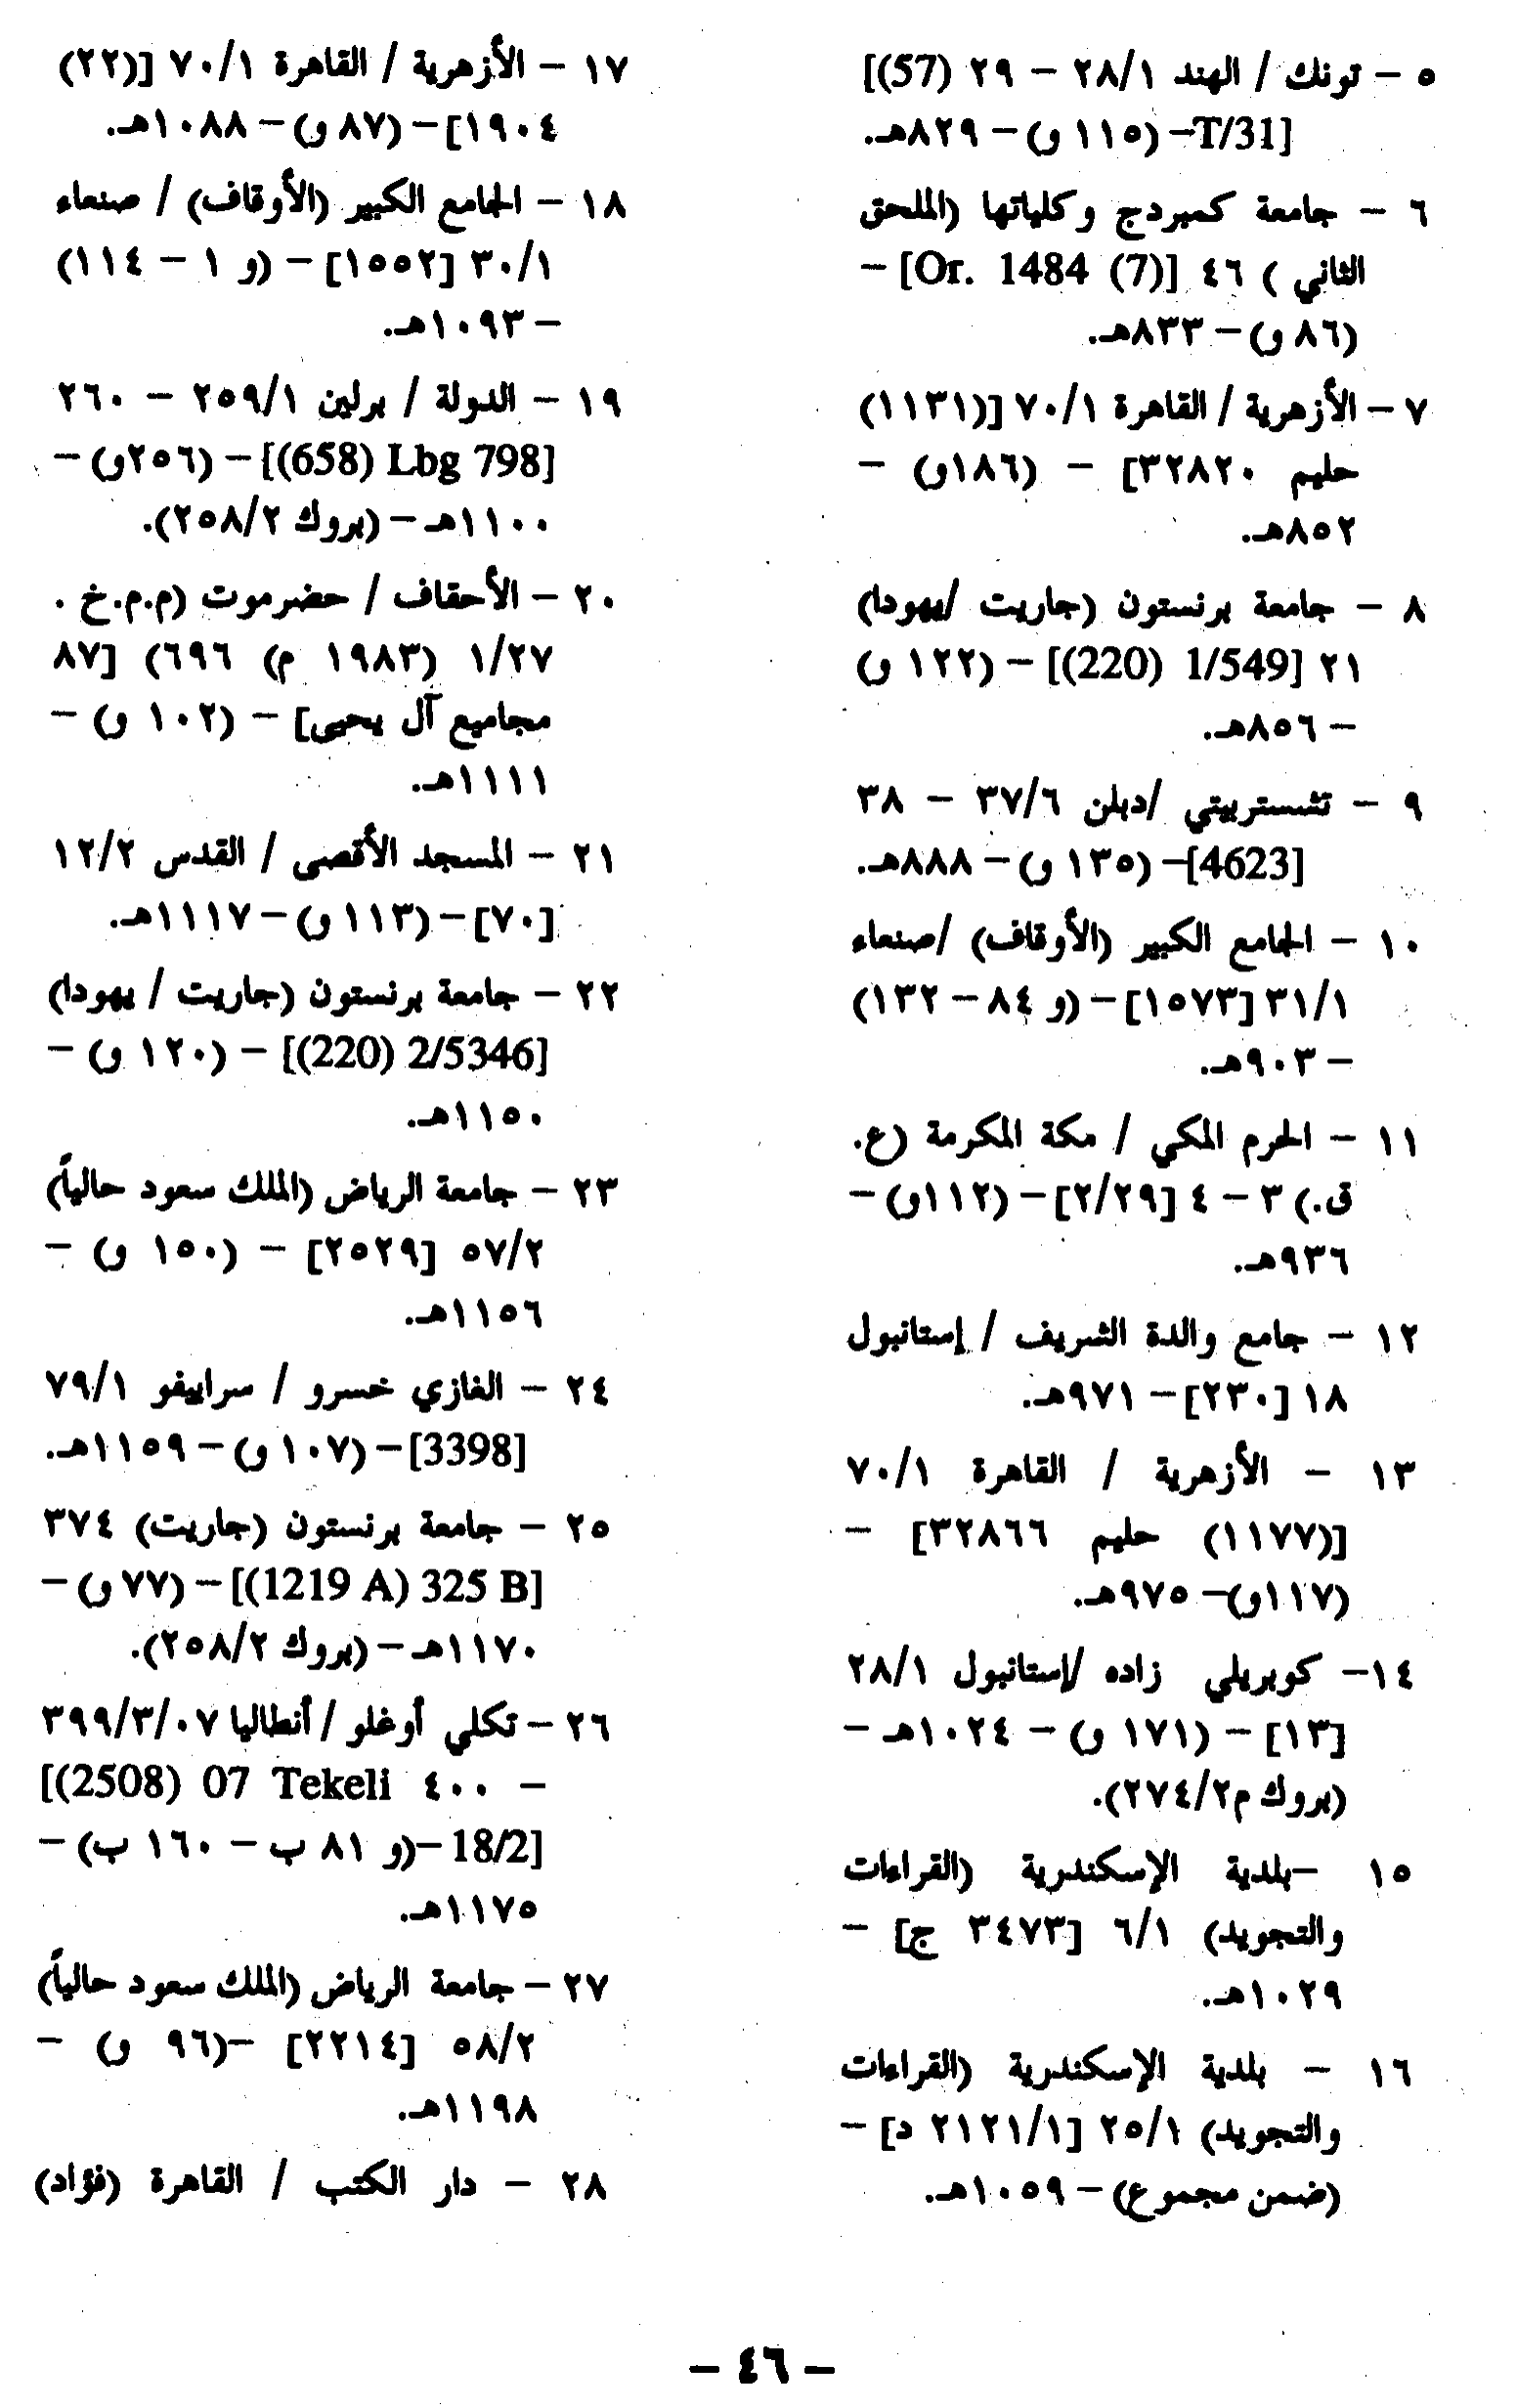 ٥ - تونك / الهند ٢٨/١ - ٢٩ [(57)
T/31] - (١١٥ و) - ٨٢٩هـ.
٦ - جامعة كمبردج وكلياتها (الملحق
الثاني ) ٤٦ [Or. 1484 (7)] -
(٨٦ و) - ٨٣٣هـ.
٧ - الأزهرية / القاهرة ٧٠/١ [(١١٣١)
حليم ٣٢٨٢٠] - (١٨٦و) -
٨٥٢هـ.
٨ - جامعة برنستون (جاريت /يهودا)
٢١ [(220) 1/549] - (١٢٢ و)
- ٨٥٦هـ.
٩ - تشستربيتي /دبلن ٣٧/٦ - ٣٨
[4623] - (١٣٥ و) - ٨٨٨هـ.
١٠ - الجامع الكبير (الأوقاف) /صنعاء
٣١/١ [١٥٧٣] - (و ٨٤ - ١٣٢)
- ٩٠٣هـ.
١١ - الحرم المكي / مكة المكرمة (ع.
ق.) ٣ - ٤ [٢/٢٩] - (١١٢و) -
٩٣٦هـ.
١٢ - جامع والدة الشريف / إستانبول
١٨ [٢٣٠] - ٩٧١هـ.
١٣ - الأزهرية / القاهرة ٧٠/١
[(١١٧٧) حليم ٣٢٨٦٦] -
(١١٧و) - ٩٧٥هـ.
١٤- كوبريلي زاده /إستانبول ٢٨/١
[١٣] - (١٧١ و) - ١٠٢٤هـ -
(بروك م٢٧٤/٢).
١٥ -بلدية الإسكندرية (القراءات
والتجويد) ٦/١ [٣٤٧٣ ج] -
١٠٢٩هـ.
١٦ - بلدية الإسكندرية (القراءات
والتجويد) ٢٥/١ [٢١٢١/١ د] -
(ضمن مجموع) - ١٠٥٩هـ.
١٧ - الأزهرية / القاهرة ٧٠/١ [(٢٢)
١٩٠٤] - (٨٧ و) - ١٠٨٨هـ.
١٨ - الجامع الكبير (الأوقاف) / صنعاء
٣٠/١ [١٥٥٢] - (و ١ - ١١٤)
- ١٠٩٣هـ.
١٩ - الدولة / برلين ٢٥٩/١ - ٢٦٠
[(658) Lbg 798] - (٢٥٦و) -
١١٠٠هـ - (بروك ٢٥٨/٢).
٢٠ - الأحقاف / حضرموت (م.م.خ .
١/٢٧ (١٩٨٣ م) ٦٩٦) [٨٧
مجاميع آل يحيى] - (١٠٢ و) -
١١١١هـ.
٢١ - المسجد الأقصى / القدس ١٢/٢
[٧٠] - (١١٣ و) - ١١١٧هـ.
٢٢ - جامعة برنستون (جاريت / يهودا)
[(220) 2/5346] - (١٢٠ و) -
١١٥٠هـ.
٢٣ - جامعة الرياض (الملك سعود حالياً)
٥٧/٢ [٢٥٢٩] - (١٥٠ و) -
١١٥٦هـ.
٢٤ - الغازي خسرو / سراييفو ٧٩/١
[3398] - (١٠٧ و) - ١١٥٩هـ.
٢٥ - جامعة برنستون (جاريت) ٣٧٤
[(1219 A) 325 B] - (٧٧ و) -
١١٧٠هـ - (بروك ٢٥٨/٢).
٢٦ - تكلي أوغلو / أنطاليا ٣٩٩/٣/٠٧
- ٤٠٠ [(2508) 07 Tekeli
18/2] -(و ٨١ ب - ١٦٠ ب) -
١١٧٥هـ.
٢٧ - جامعة الرياض (الملك سعود حالياً)
٥٨/٢ [٢٢١٤] -(٩٦ و) -
١١٩٨هـ.
٢٨ - دار الكتب / القاهرة (فؤاد)
- ٤٦ -